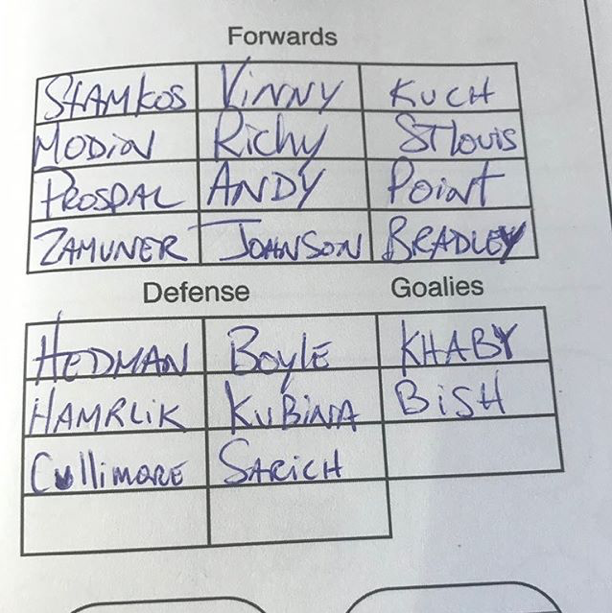 Forwards
STAMKOS VINNY KUCH
MODIN Richy STlouis
PROSPAL ANDY POINT
ZAMUNER JOHNSON BRADLEY
Defense Goalies
HEDMAN BOYLE KHABY
HAMRLIK KUBINA BISH
Cullimore SARICH